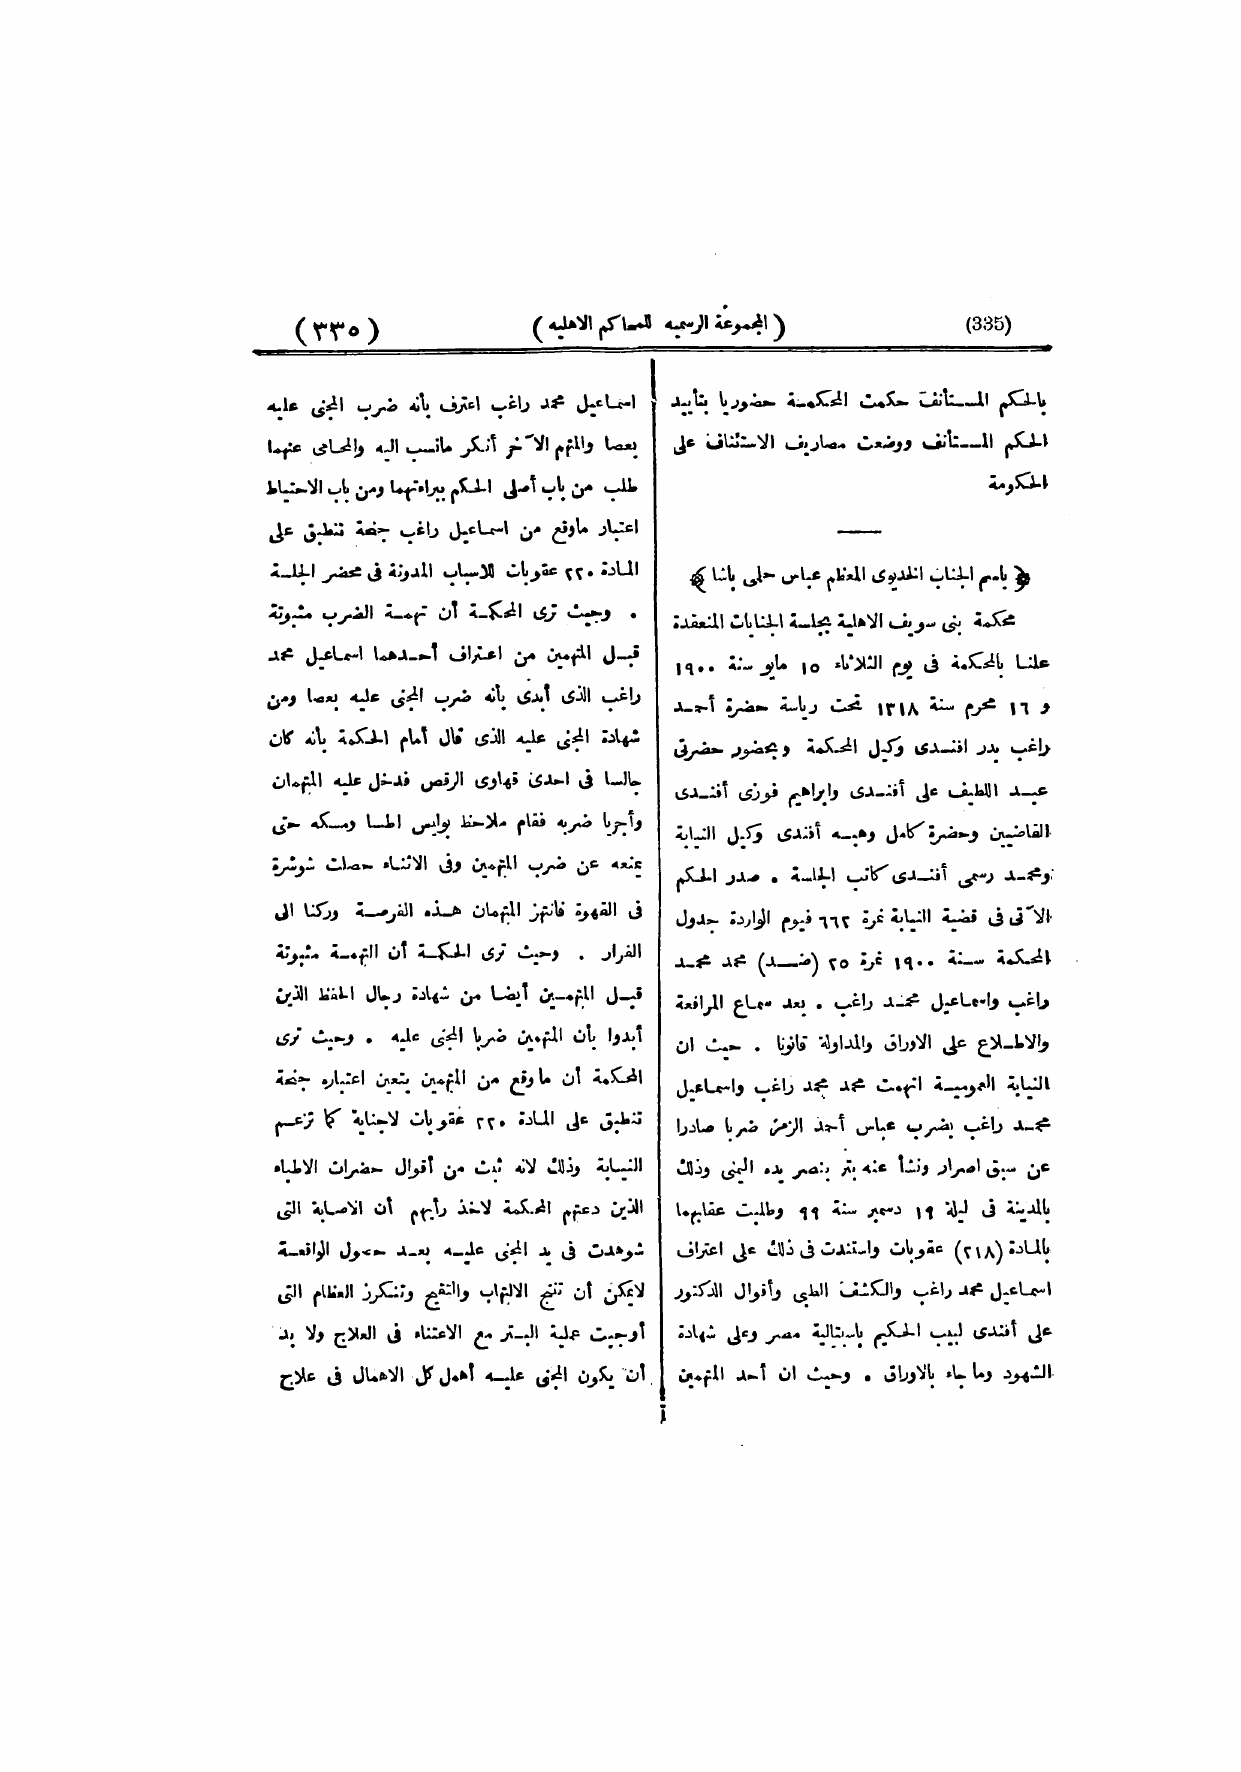 (335)
(المجموعة الرسميه للمحاكم الاهليه)
(٣٣٥)
بالحكم المستأنف حكمت المحكمة حضوريا بتأييد
الحكم المستأنف ووضعت مصاريف الاستئناف على
الحكومة
﴿ باسم الجناب الخديوى المعظم عباس حلمى باشا ﴾
محكمة بنى سويف الاهلية بجلسة الجنايات المنعقدة
علنا بالمحكمة فى يوم الثلاثاء ١٥ مايو سنة ١٩٠٠
و ١٦ محرم سنة ١٣١٨ تحت رياسة حضرة أحمد
راغب بدر افندى وكيل المحكمة وبحضور حضرتى
عبد اللطيف على أفندى وابراهيم فوزى أفندى
القاضيين وحضرة كامل وهبه أفندى وكيل النيابة
ومحمد رسمى أفندى كاتب الجلسة . صدر الحكم
الآتى فى قضية النيابة نمرة ٦٦٢ فيوم الواردة جدول
المحكمة سنة ١٩٠٠ نمرة ٢٥ (ضد) محمد محمد
راغب واسماعيل محمد راغب . بعد سماع المرافعة
والاطلاع على الاوراق والمداولة قانونا . حيث ان
النيابة العمومية اتهمت محمد محمد راغب واسماعيل
محمد راغب بضرب عباس أحمد الزمن ضربا صادرا
عن سبق اصرار ونشأ عنه بتر بنصر يده اليمنى وذلك
بالمدينة فى ليلة ١٩ دسمبر سنة ٩٩ وطلبت عقابهما
بالمادة (٢١٨) عقوبات واستندت فى ذلك على اعتراف
اسماعيل محمد راغب والكشف الطبى وأقوال الدكتور
على أفندى لبيب الحكيم باسبتالية مصر وعلى شهادة
الشهود وما جاء بالاوراق . وحيث ان أحد المتهمين
اسماعيل محمد راغب اعترف بأنه ضرب المجنى عليه
بعصا والمتهم الآخر أنكر مانسب اليه والمحامى عنهما
طلب من باب أصلى الحكم ببراءتهما ومن باب الاحتياط
اعتبار ماوقع من اسماعيل راغب جنحة تنطبق على
المادة ٢٢٠ عقوبات للاسباب المدونة فى محضر الجلسة
. وحيث ترى المحكمة أن تهمة الضرب مثبوتة
قبل المتهمين من اعتراف أحدهما اسماعيل محمد
راغب الذى أبدى بأنه ضرب المجنى عليه بعصا ومن
شهادة المجنى عليه الذى قال أمام الحكمة بأنه كان
جالسا فى احدى قهاوى الرقص فدخل عليه المتهمان
وأجريا ضربه فقام ملاحظ بوليس اطسا ومسكه حتى
يمنعه عن ضرب المتهمين وفى الاثناء حصلت شوشرة
فى القهوة فانتهز المتهمان هذه الفرصة وركنا الى
الفرار . وحيث ترى الحكمة أن التهمة مثبوتة
قبل المتهمين أيضا من شهادة رجال الحفظ الذين
أبدوا بأن المتهمين ضربا المجنى عليه . وحيث ترى
المحكمة أن ما وقع من المتهمين يتعين اعتباره جنحة
تنطبق على المادة ٢٢٠ عقوبات لاجناية كما تزعم
النيابة وذلك لانه ثبت من أقوال حضرات الاطباء
الذين دعتهم المحكمة لاخذ رأيهم أن الاصابة التى
شوهدت فى يد المجنى عليه بعد حصول الواقعة
لايمكن أن تنتج الالتهاب والتقيح وتنكرز العظام التى
أوجبت عملية البتر مع الاعتناء فى العلاج ولا بد
أن يكون المجنى عليه أهمل كل الاهمال فى علاج